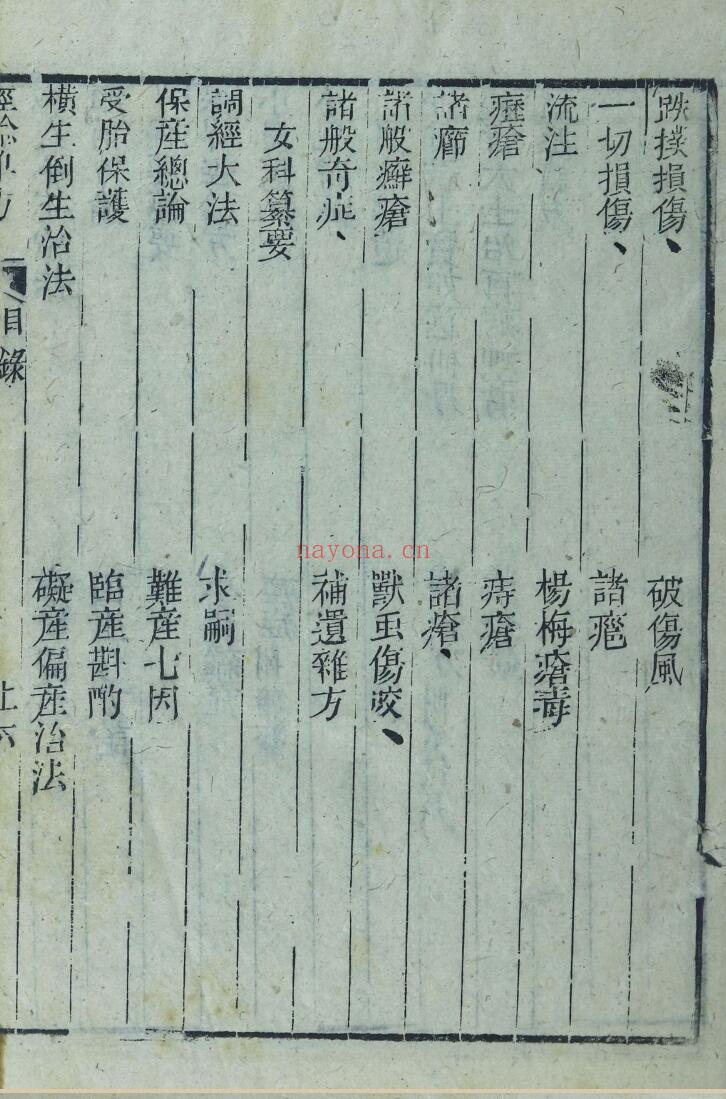 跌撲損傷、 破傷風
一切損傷、 諸疤
流注 楊梅瘡毒
瘞瘡 痔瘡
諸癤 諸瘡、
諸般癬瘡 獸虫傷咬、
諸般奇症、 補遺雜方
女科纂要
調經大法 求嗣
保産總論 難産七因
受胎保護 臨産斟酌
橫生倒生治法 礙産偏産治法
目錄
nayona.cn